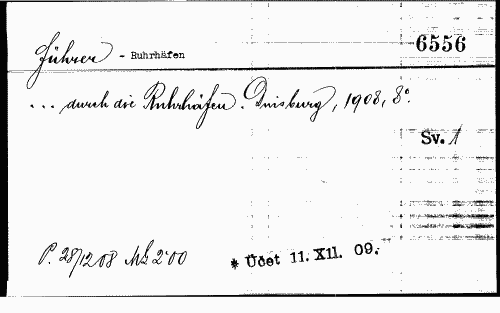 Führer - Ruhrhäfen 6556
... durch die Ruhrhäfen. Duisburg, 1908, 8°.
Sv. 1
P. 28/12 08 Mk 2·00 * Účet 11. XII. 09.